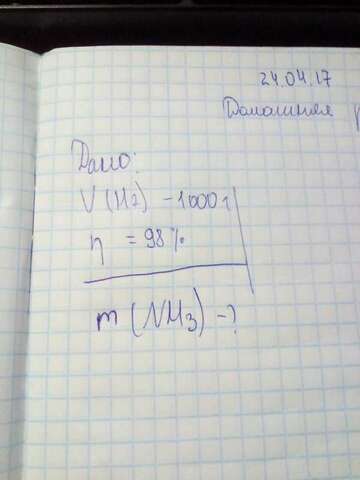 24.04.17
Домашняя
Дано:
V(H2) - 1000 л
η = 98%
m (NH3) - ?